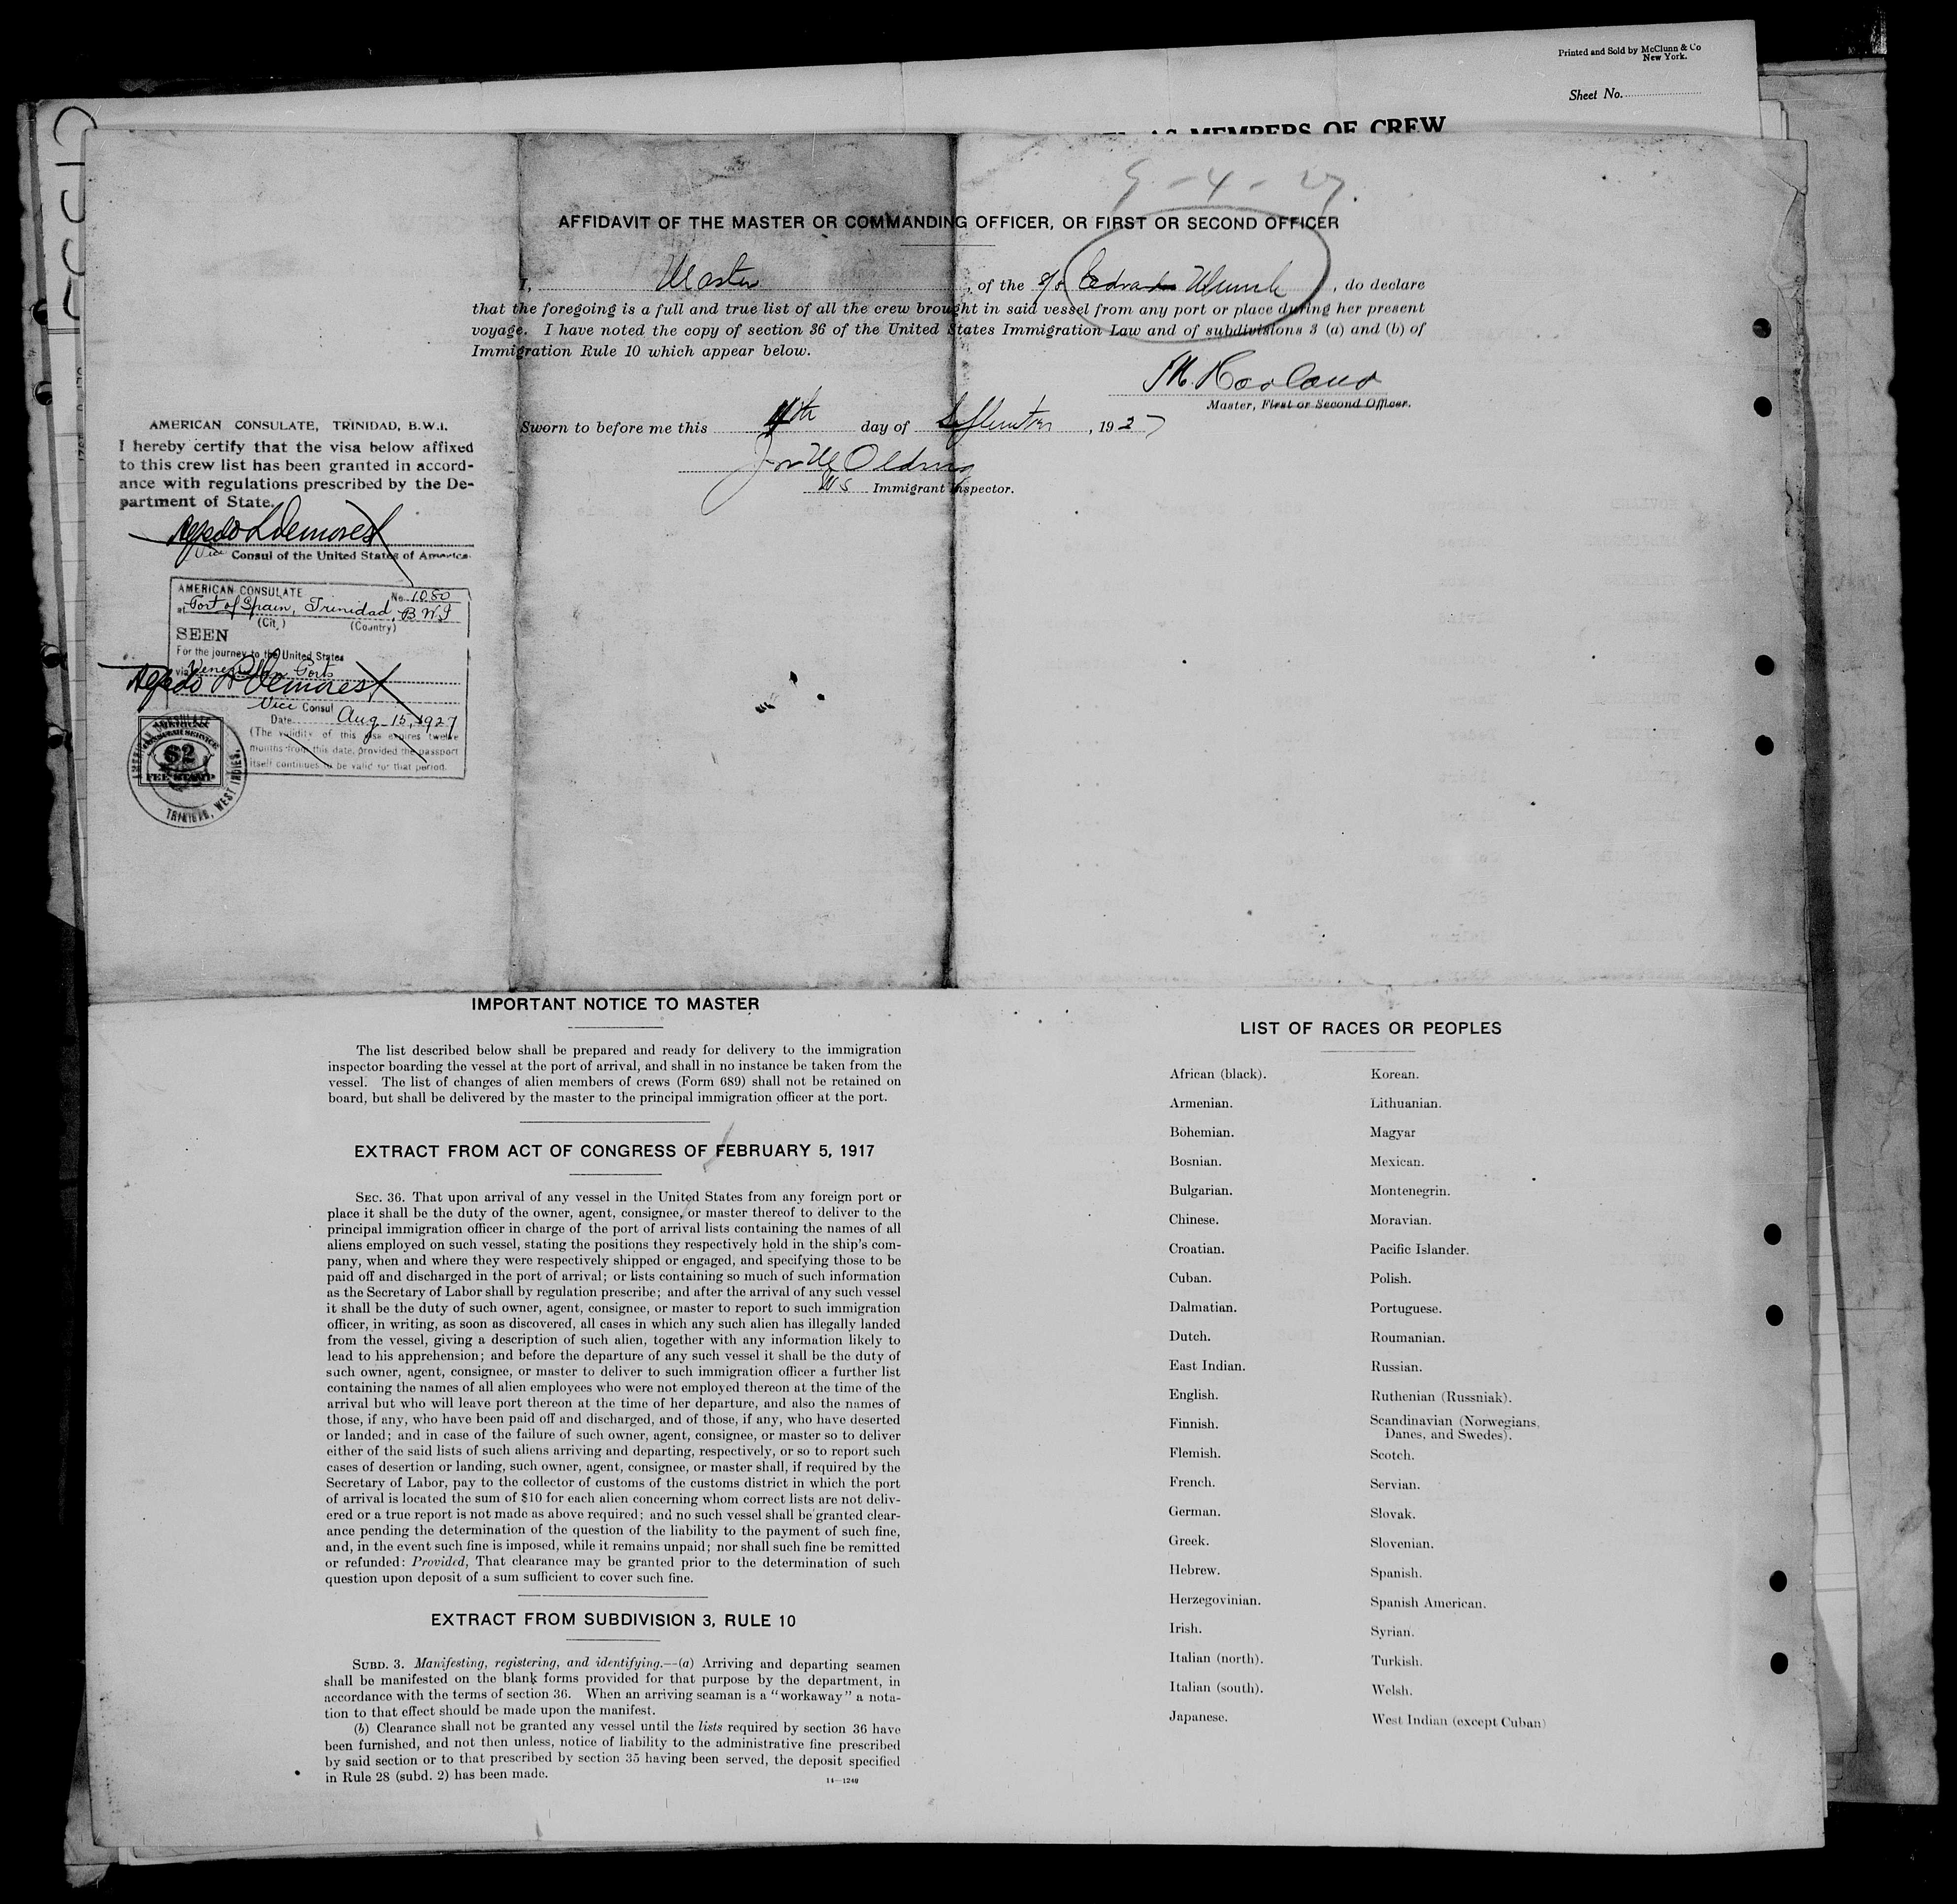 Printed and Sold by McClunn & Co
New York.
Sheet No.
AS MEMBERS OF CREW
9-4-27.
AFFIDAVIT OF THE MASTER OR COMMANDING OFFICER, OR FIRST OR SECOND OFFICER
I, Master, of the S/S Edvard Munch, do declare
that the foregoing is a full and true list of all the crew brought in said vessel from any port or place during her present
voyage. I have noted the copy of section 36 of the United States Immigration Law and of subdivisions 3 (a) and (b) of
Immigration Rule 10 which appear below.
Master, First or Second Officer.
Sworn to before me this 4th day of September, 1927
US Immigrant Inspector.
AMERICAN CONSULATE, TRINIDAD, B.W.I.
I hereby certify that the visa below affixed
to this crew list has been granted in accord-
ance with regulations prescribed by the De-
partment of State.
Demorest
Vice Consul of the United States of America
AMERICAN CONSULATE No. 1050
at Port of Spain, Trinidad, B.W.I
(City) (Country)
SEEN
For the journey to the United States
via Venezuelan Ports
Demorest
Vice Consul
Date Aug 15, 1927
(The validity of this visa expires twelve
months from this date, provided the passport
itself continues to be valid for that period.
AMERICAN
CONSULAR SERVICE
$2
FEE STAMP
AMERICAN CONSULATE
TRINIDAD, WEST INDIES.
IMPORTANT NOTICE TO MASTER
The list described below shall be prepared and ready for delivery to the immigration
inspector boarding the vessel at the port of arrival, and shall in no instance be taken from the
vessel. The list of changes of alien members of crews (Form 689) shall not be retained on
board, but shall be delivered by the master to the principal immigration officer at the port.
EXTRACT FROM ACT OF CONGRESS OF FEBRUARY 5, 1917
SEC. 36. That upon arrival of any vessel in the United States from any foreign port or
place it shall be the duty of the owner, agent, consignee, or master thereof to deliver to the
principal immigration officer in charge of the port of arrival lists containing the names of all
aliens employed on such vessel, stating the positions they respectively hold in the ship's com-
pany, when and where they were respectively shipped or engaged, and specifying those to be
paid off and discharged in the port of arrival; or lists containing so much of such information
as the Secretary of Labor shall by regulation prescribe; and after the arrival of any such vessel
it shall be the duty of such owner, agent, consignee, or master to report to such immigration
officer, in writing, as soon as discovered, all cases in which any such alien has illegally landed
from the vessel, giving a description of such alien, together with any information likely to
lead to his apprehension; and before the departure of any such vessel it shall be the duty of
such owner, agent, consignee, or master to deliver to such immigration officer a further list
containing the names of all alien employees who were not employed thereon at the time of the
arrival but who will leave port thereon at the time of her departure, and also the names of
those, if any, who have been paid off and discharged, and of those, if any, who have deserted
or landed; and in case of the failure of such owner, agent, consignee, or master so to deliver
either of the said lists of such aliens arriving and departing, respectively, or so to report such
cases of desertion or landing, such owner, agent, consignee, or master shall, if required by the
Secretary of Labor, pay to the collector of customs of the customs district in which the port
of arrival is located the sum of $10 for each alien concerning whom correct lists are not deliv-
ered or a true report is not made as above required; and no such vessel shall be granted clear-
ance pending the determination of the question of the liability to the payment of such fine,
and, in the event such fine is imposed, while it remains unpaid; nor shall such fine be remitted
or refunded: Provided, That clearance may be granted prior to the determination of such
question upon deposit of a sum sufficient to cover such fine.
EXTRACT FROM SUBDIVISION 3, RULE 10
SUBD. 3. Manifesting, registering, and identifying.--(a) Arriving and departing seamen
shall be manifested on the blank forms provided for that purpose by the department, in
accordance with the terms of section 36. When an arriving seaman is a "workaway" a nota-
tion to that effect should be made upon the manifest.
(b) Clearance shall not be granted any vessel until the lists required by section 36 have
been furnished, and not then unless, notice of liability to the administrative fine prescribed
by said section or to that prescribed by section 35 having been served, the deposit specified
in Rule 28 (subd. 2) has been made.
14—1249
LIST OF RACES OR PEOPLES
African (black).
Armenian.
Bohemian.
Bosnian.
Bulgarian.
Chinese.
Croatian.
Cuban.
Dalmatian.
Dutch.
East Indian.
English.
Finnish.
Flemish.
French.
German.
Greek.
Hebrew.
Herzegovinian.
Irish.
Italian (north).
Italian (south).
Japanese.
Korean.
Lithuanian.
Magyar
Mexican.
Montenegrin.
Moravian.
Pacific Islander.
Polish.
Portuguese.
Roumanian.
Russian.
Ruthenian (Russniak).
Scandinavian (Norwegians,
Danes, and Swedes).
Scotch.
Servian.
Slovak.
Slovenian.
Spanish.
Spanish American.
Syrian.
Turkish.
Welsh.
West Indian (except Cuban)